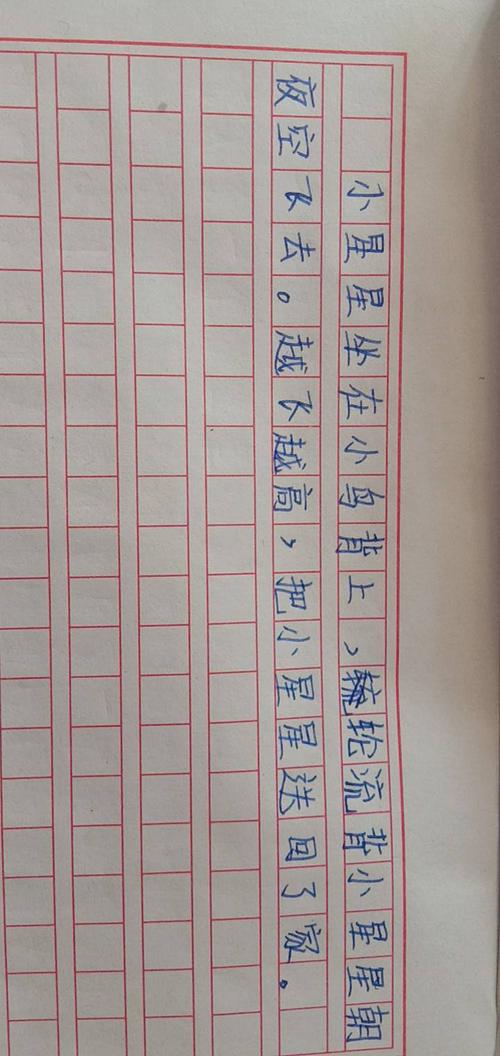 小星星坐在小鸟背上,轮流背小星星朝
夜空飞去。越飞越高,把小星星送回了家。